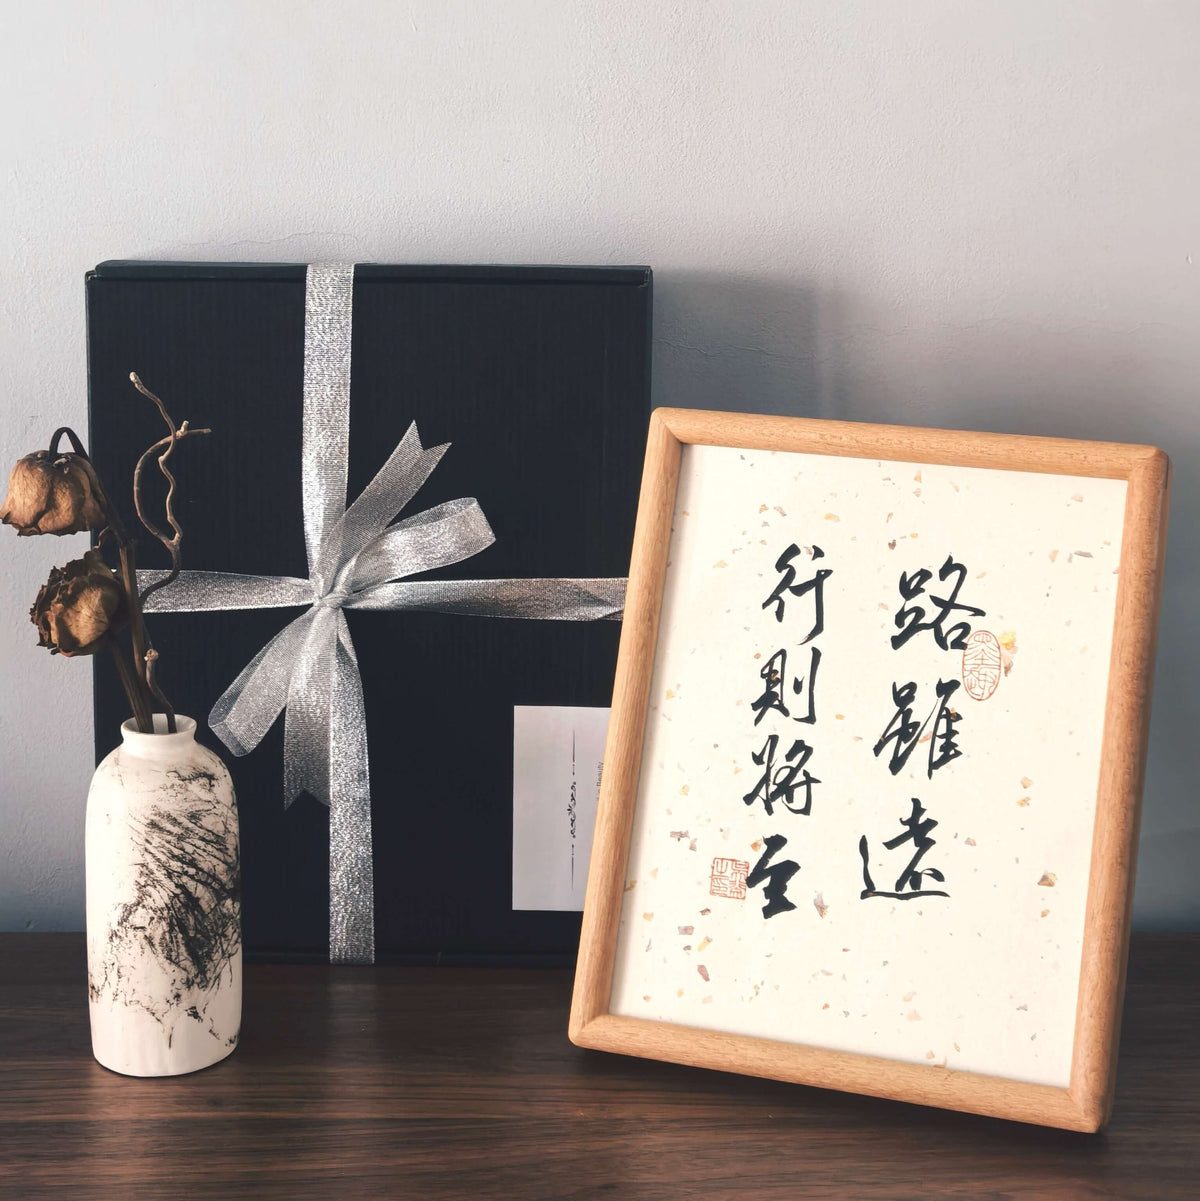 路雖遠
行則將至
Beauty